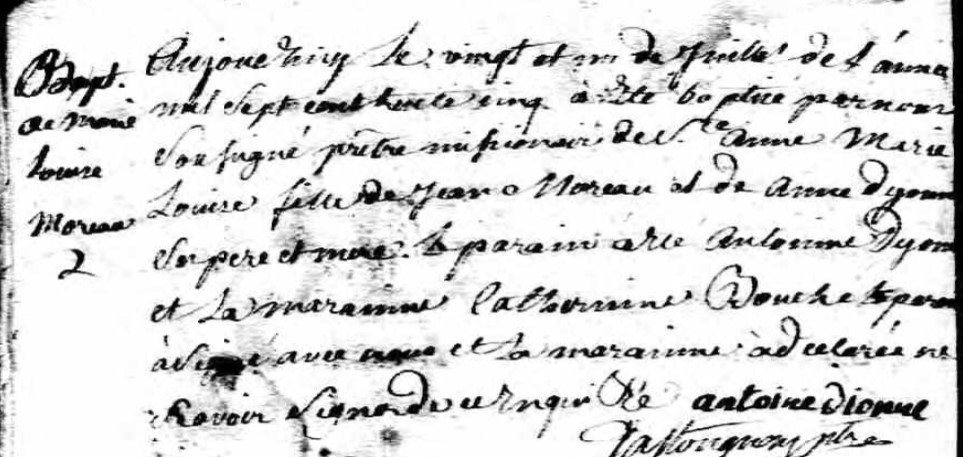 Bapt.
de marie
Louise
Moreau
2
Aujourdhuy le vingt et un de Juillet de l'année
mil sept cent trente cinq a été baptisé par nous
soussigné prêtre missionnaire de Ste anne Marie
Louise fille de Jean Moreau et de Anne Dyonne
son pere et mere. Le parain a été Antoinne Dyonne
et la marainne Catherinne Bouché le parain
à signé avec nous et la marainne à declarée ne
scavoir signer de ce enquis Antoine dionne
ptre